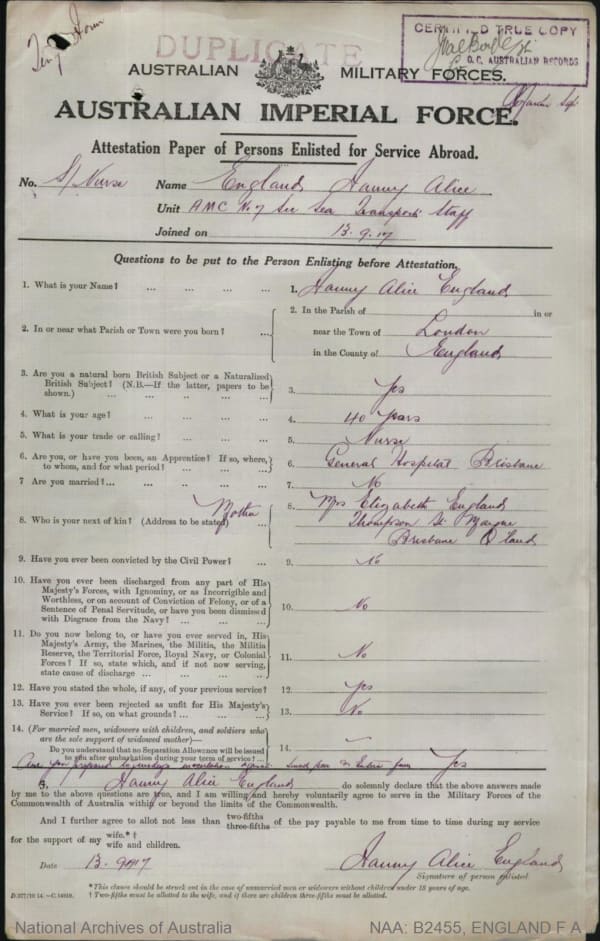 DUPLICATE
CERTIFIED TRUE COPY
O.C. AUSTRALIAN RECORDS
AUSTRALIAN MILITARY FORCES.
AUSTRALIAN IMPERIAL FORCE.
Attestation Paper of Persons Enlisted for Service Abroad.
No. S/Nurse Name England Fanny Alice
Unit AMC No 7 Sea Transport Staff
Joined on 13.9.17
Questions to be put to the Person Enlisting before Attestation.
1. What is your Name? ... ... ... ... 1. Fanny Alice England
2. In or near what Parish or Town were you born? ... 2. In the Parish of in or
near the Town of London
in the County of England
3. Are you a natural born British Subject or a Naturalized
British Subject? (N.B.—If the latter, papers to be
shown.) ... ... ... ... ... 3. Yes
4. What is your age? ... ... ... ... 4. 40 Years
5. What is your trade or calling? ... ... ... 5. Nurse
6. Are you, or have you been, an Apprentice? If so, where,
to whom, and for what period? ... ... ... 6. General Hospital Brisbane
7 Are you married?... ... ... ... ... 7. No
8. Who is your next of kin? (Address to be stated) Mother 8. Mrs Elizabeth England
Thompson St Mayne
Brisbane Q'land
9. Have you ever been convicted by the Civil Power? ... 9. No
10. Have you ever been discharged from any part of His
Majesty's Forces, with Ignominy, or as Incorrigible and
Worthless, or on account of Conviction of Felony, or of a
Sentence of Penal Servitude, or have you been dismissed
with Disgrace from the Navy? ... ... ... 10. No
11. Do you now belong to, or have you ever served in, His
Majesty's Army, the Marines, the Militia, the Militia
Reserve, the Territorial Force, Royal Navy, or Colonial
Forces? If so, state which, and if not now serving,
state cause of discharge ... ... ... ... 11. No
12. Have you stated the whole, if any, of your previous service? 12. Yes
13. Have you ever been rejected as unfit for His Majesty's
Service? If so, on what grounds? ... ... ... 13. No
14. (For married men, widowers with children, and soldiers who
are the sole support of widowed mother)—
Do you understand that no Separation Allowance will be issued
to you after embarkation during your term of service? ... 14. —
Are you prepared to undergo inoculation against Small pox & Enteric fever Yes
I, Fanny Alice England do solemnly declare that the above answers made
by me to the above questions are true, and I am willing and hereby voluntarily agree to serve in the Military Forces of the
Commonwealth of Australia within or beyond the limits of the Commonwealth.
And I further agree to allot not less than two-fifths three-fifths of the pay payable to me from time to time during my service
for the support of my wife.*† wife and children.
Date 13.9.17 Fanny Alice England
Signature of person enlisted.
D.377/10.14.—C.14019. * This clause should be struck out in the case of unmarried men or widowers without children under 18 years of age.
† Two-fifths must be allotted to the wife, and if there are children three-fifths must be allotted.
National Archives of Australia NAA: B2455, ENGLAND F A